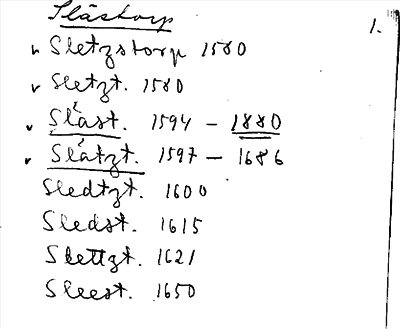 Slåstorp
1.
v Sletzstorp 1580
v Sletzt. 1580
v Slåst. 1594 – 1880
v Slåtzt. 1597 – 1686
Sledtzt. 1600
Sledst. 1615
Slettzt. 1621
Sleest. 1650